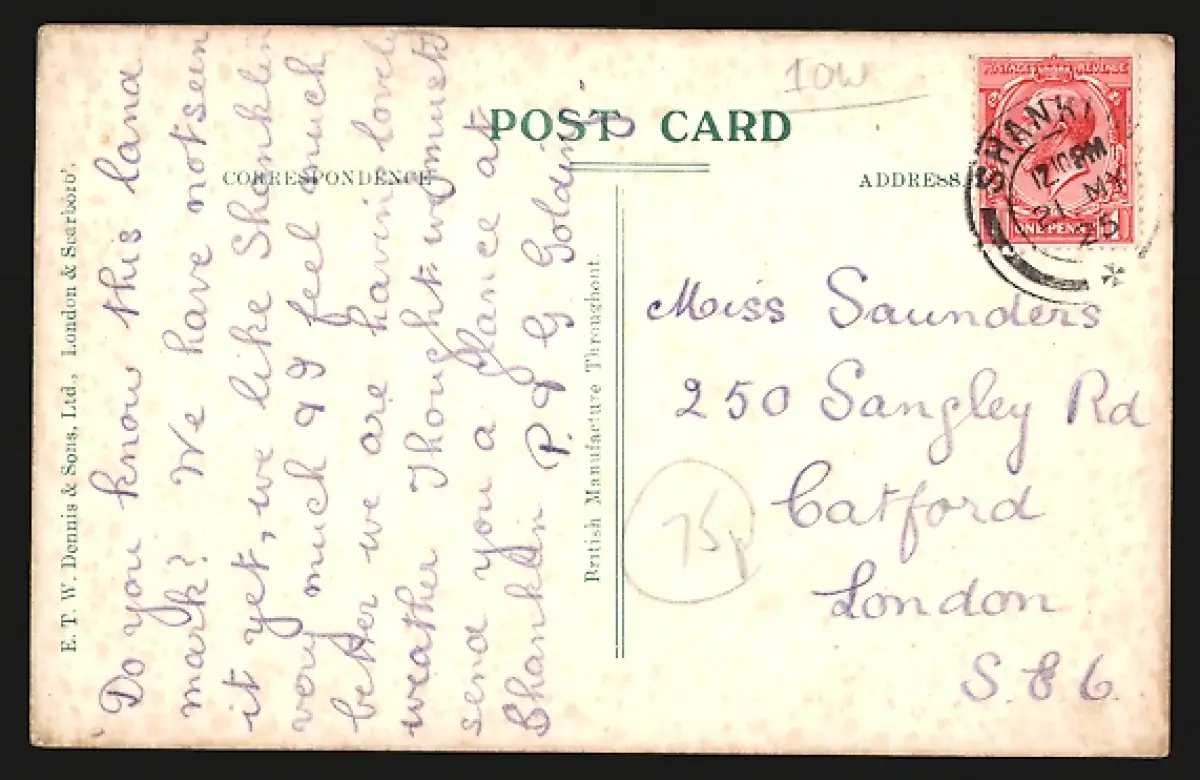 POST CARD
IOW
CORRESPONDENCE
ADDRESS.
E. T. W. Dennis & Sons, Ltd., London & Scarboro'.
British Manufacture Throughout.
Do you know this land
mark? We have not seen
it yet, we like Shanklin
very much & I feel much
better we are having lovely
weather Thought we must
send you a glance at
Shanklin P. & G Golding
Miss Saunders
250 Sangley Rd
Catford
London
S. E 6.
75p
POSTAGE REVENUE
ONE PENNY
SHANKL
12.10 PM
21 MY
25